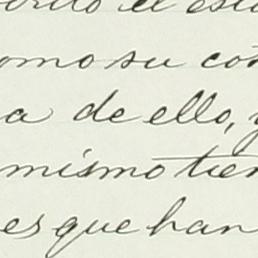 el est
omo su con
a de ello, y
mismo tien
es que han